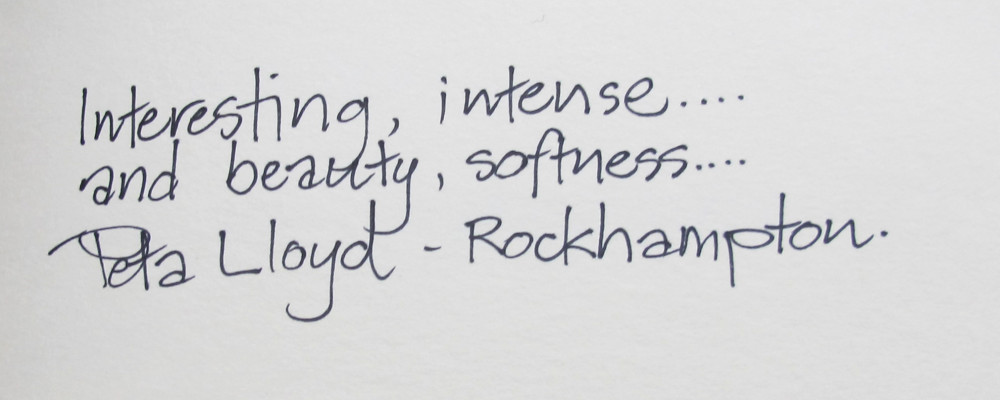 Interesting, intense....
and beauty, softness....
Peta Lloyd - Rockhampton.